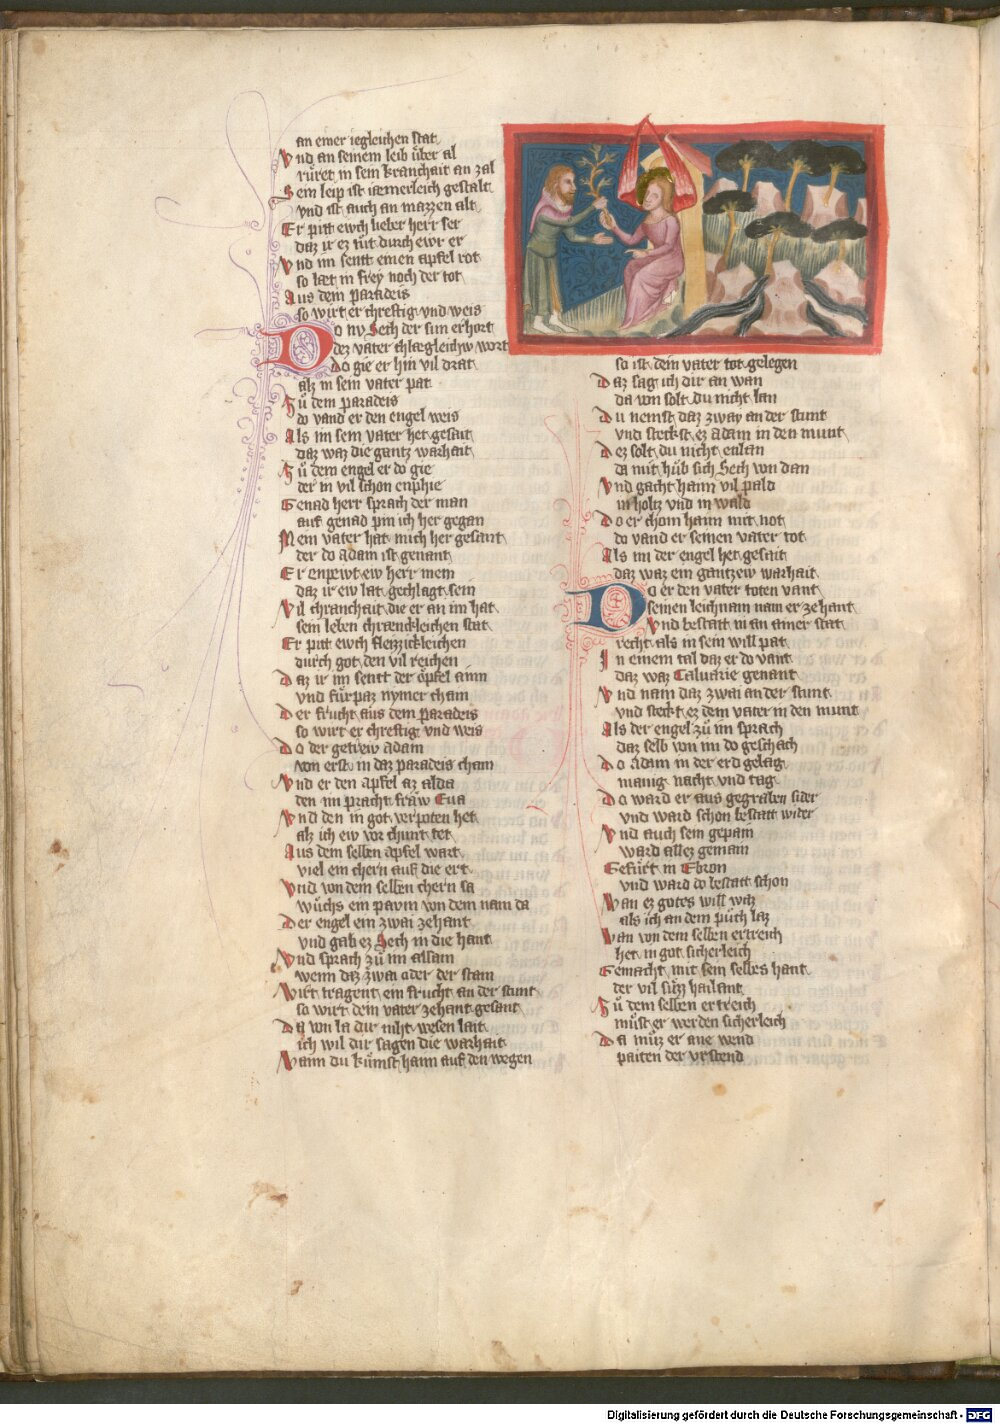 an einer iegleichen stat
Vnd an seinem leib vͤber al
rvͤret in sein kranchait an zal
Sein leip ist iæmerleich gestalt
vnd ist auch an mazzen alt
Er pitt ewch lieber herr ser
daz ir ez tuͤt durch ewr er
Vnd im sentt einen apfel rot
so læt in frey noch der tot
Aus dem paradeis
so wirt er chreftig vnd weis
Do ny Sech der sun erhort
dez vater chlægleichw wort
Do gie er hin vil drat
alz in sein vater pat
Zuͤ dem paradeis
do vand er den engel weis
Als im sein vater het gesait
daz waz die gantz warhait
Zuͤ dem engel er do gie
der in vil schon enphie
Genad herr sprach der man
auf genad pin ich her gegan
Mein vater hat mich her gesant
der do Adam ist genant
Er enpewt ew herr mein
daz ir ew lat gechlagt sein
Vil chranchait die er an im hat
sein leben chrænchleichen stat
Er pitt ewch fleizzichleichen
durch got den vil reichen
Daz ir im sentt der oͤpfel ainn
vnd fuͤrpaz nymer chain
Der frucht aus dem paradeis
so wirt er chreftig vnd weis
Do der getrew Adam
von erst in daz paradeis cham
Vnd er den apfel az alda
den im pracht fraw Eua
Vnd den in got verpoten het
alz ich ew vor chunt tet
Aus dem selben apfel wart
viel ein chern auf die ert
Vnd von dem selben chern sa
wuͤchs ein pavm von dem nam da
Der engel ein zwai zehant
vnd gab ez Sech in die hant
Vnd sprach zuͤ im allain
wenn daz zwai oder der stam
Wirt tragent ein frucht an der stunt
so wirt dein vater zehant gesunt
Da von la dir niht wesen lait
ich wil dir sagen die warhait
Wann du kuͤmst hann auf den wegen
so ist dein vater tot gelegen
Daz sag ich dir an wan
da von solt du nicht lan
Du nemst daz zway an der stunt
vnd steckst ez Adam in den munt
Dez solt du nicht enlan
da mit huͤb sich Sech von dan
Vnd gacht hann vil pald
in holtz vnd in wald
Do er chom hann mit not
do vand er seinen vater tot
Als im der engel het gesait
daz waz ein gantzew warhait
Do er den vater toten vant
seinen leichnam nam er ze hant
Vnd bestatt in an ainer stat
recht als in sein will pat
In einem tal daz er do vant
daz waz Caluarie genant
Vnd nam daz zwai an der stunt
vnd steckt ez dem vater in den munt
Als der engel zuͤ im sprach
daz selb von im do geschach
Do Adam in der erd gelag
manig nacht vnd tag
Do ward er aus gegraben sider
vnd ward schon bestatt wider
Vnd auch sein gepain
ward allez gemain
Gefuͤrt in Ebron
vnd ward do bestatt schon
Wan ez gotes will waz
als ich an dem puͤch laz
Wan von dem selben ertreich
het in got sicherleich
Gemacht mit sein selbes hant
der vil suͤzz hailant
Zuͤ dem selben ertreich
muͤst er werden sicherleich
Da muͤz er ane wend
paiten der vrstend
Digitalisierung gefördert durch die Deutsche Forschungsgemeinschaft - DFG